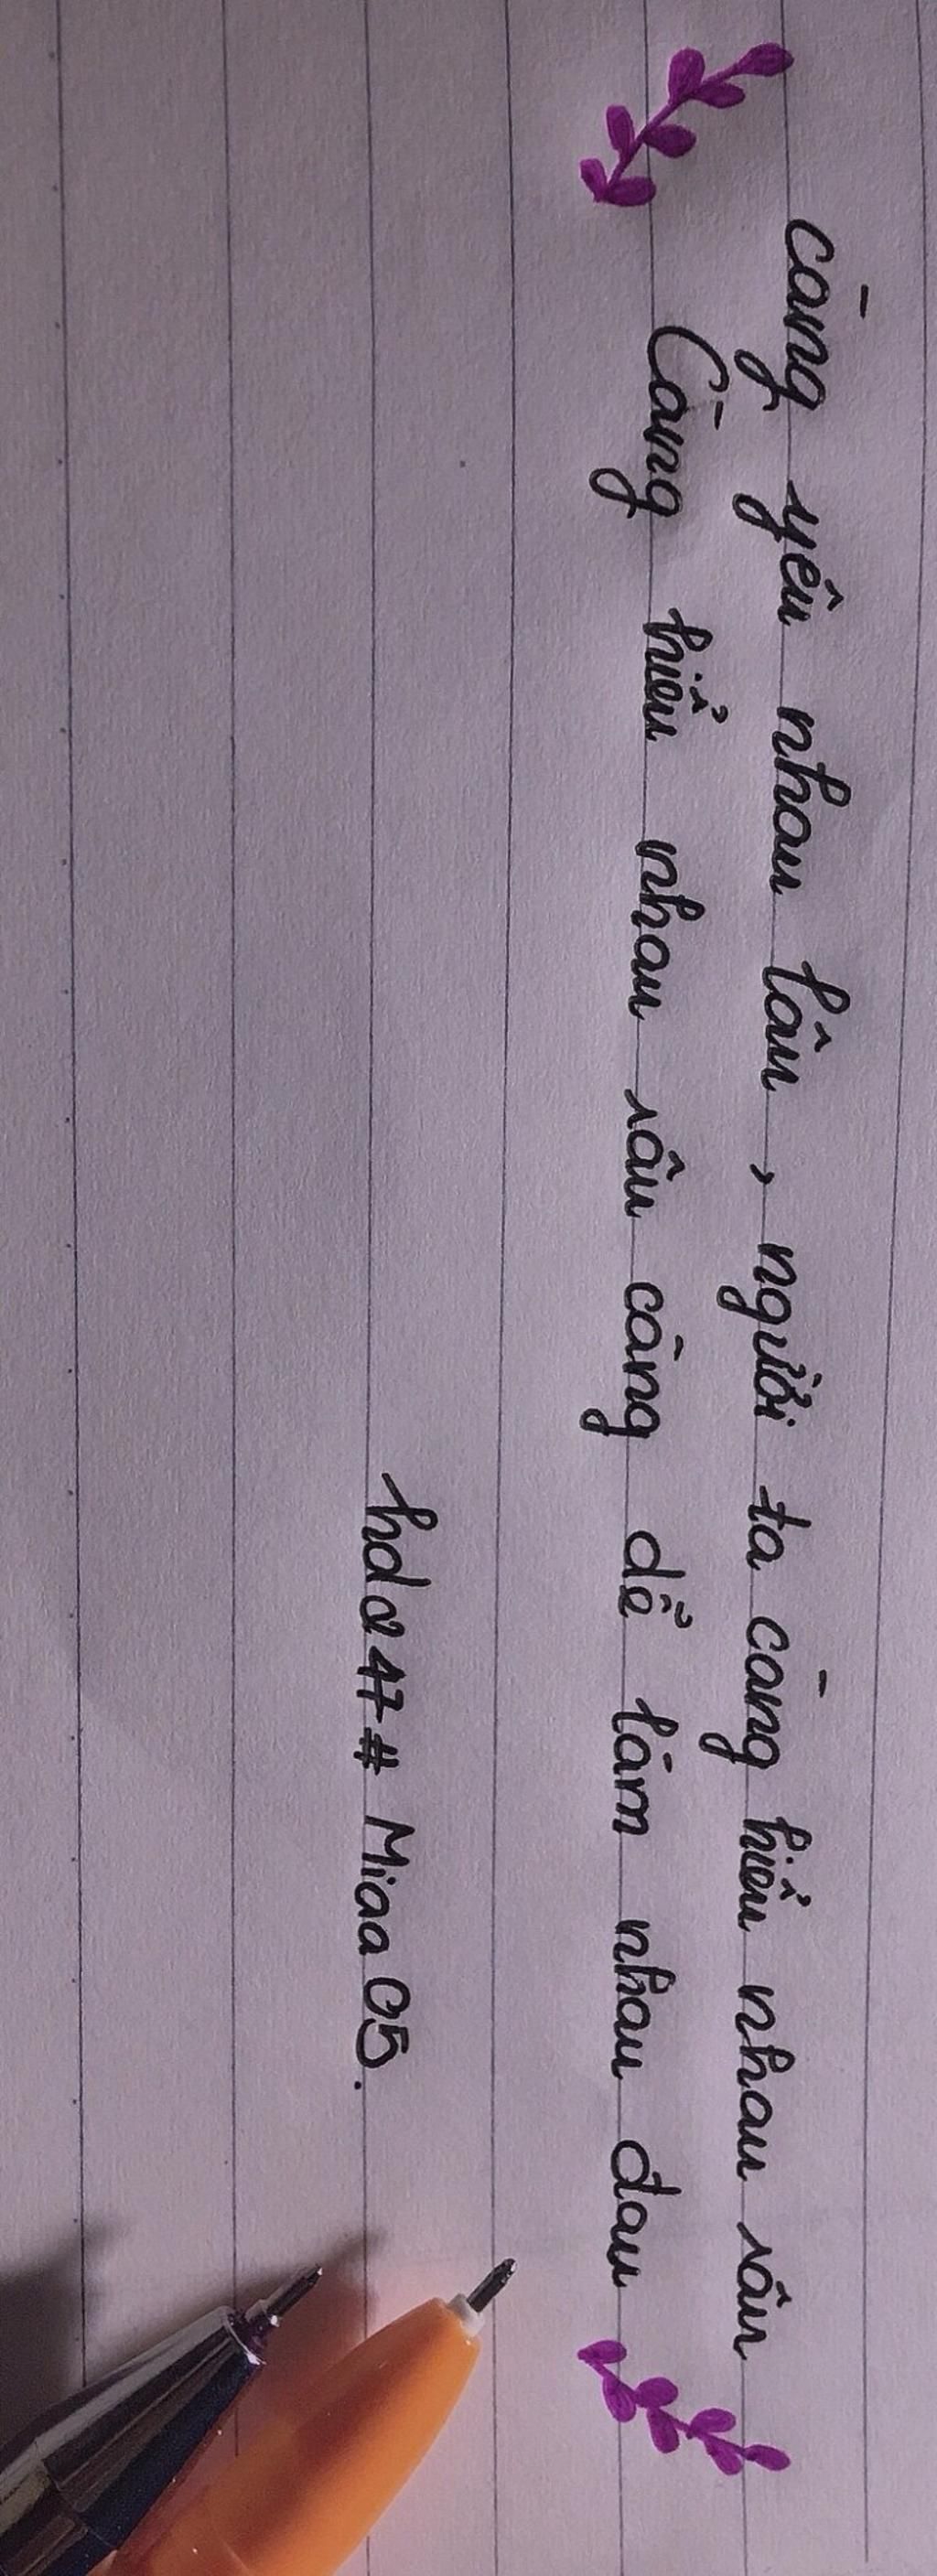 càng yêu nhau lâu, người ta càng hiểu nhau sâu
Càng hiểu nhau sâu càng dể làm nhau đau
hda47# Miaa05.